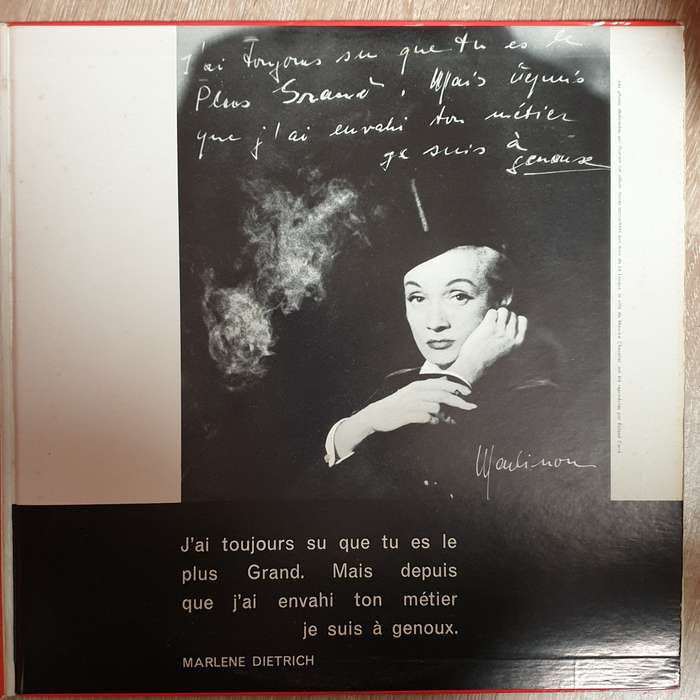 J'ai toujours su que tu es le
Plus Grand. Mais depuis
que j'ai envahi ton métier
je suis à
genoux
J'ai toujours su que tu es le
plus Grand. Mais depuis
que j'ai envahi ton métier
je suis à genoux.
MARLENE DIETRICH